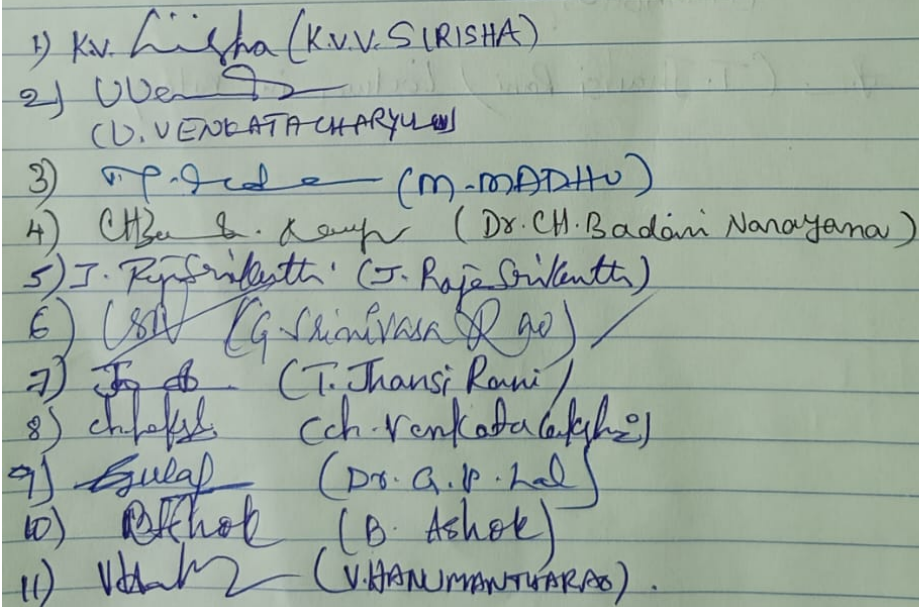 1) K.V. Sirisha (K.V.V. SIRISHA)
2)
(V. VENKATACHARYULU)
3) (M. MADHU)
4) (Dr. CH. Badari Narayana)
5) J. Raja Srikanth (J. Raja Srikanth)
6) GSN (G. Srinivasa Rao)
7) (T. Jhansi Rani)
8) (ch. Venkatalakshmi)
9) Gulal (Dr. G.P. Lal)
10) B Ashok (B. Ashok)
11) (V. HANUMANTHARAO).